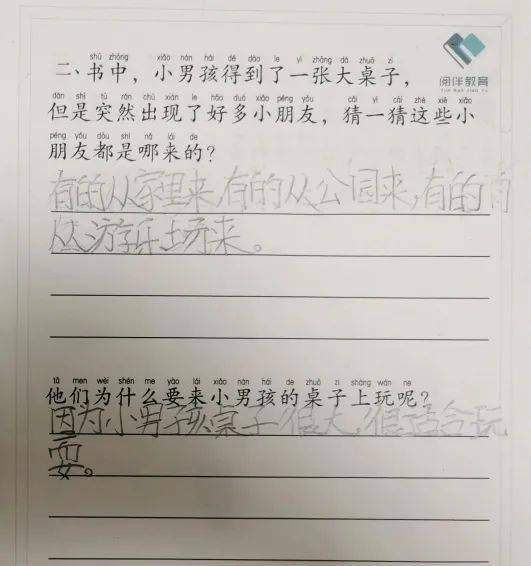 shū zhōng xiǎo nán hái dé dào le yì zhāng dà zhuō zi
二、书中，小男孩得到了一张大桌子，
阅伴教育
YUE BAN JIAO YU
dàn shì tū rán chū xiàn le hǎo duō xiǎo péng yǒu cāi yi cāi zhè xiē xiǎo
但是突然出现了好多小朋友，猜一猜这些小
péng yǒu dōu shì nǎ lái de
朋友都是哪来的？
有的从家里来,有的从公园来,有的
从游乐场来。
tā men wèi shén me yào lái xiǎo nán hái de zhuō zi shàng wán ne
他们为什么要来小男孩的桌子上玩呢？
因为小男孩桌子很大,很适合玩
耍。